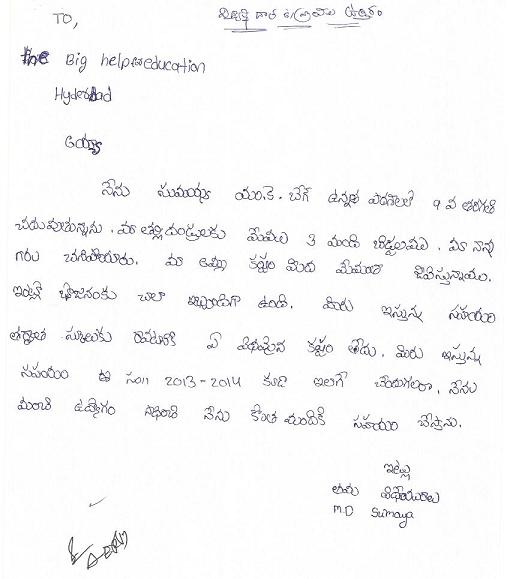 విద్యార్థి దాత కు వ్రాయు ఉత్తరం
TO,
the Big help for education
Hyderabad
అయ్యా
నేను సుమయ్య యం.కె. బేగ్ ఉన్నత పాఠశాలలో 9 వ తరగతి
చదువుతున్నాను. మా తల్లిదండ్రులకు మేము 3 మంది బిడ్డలము. మా నాన్న
గారు చనిపోయారు. మా అమ్మ కష్టం మీద మేమంతా జీవిస్తున్నాము.
ఇంట్లో భోజనంకు చాలా ఇబ్బందిగా ఉంది. మీరు ఇస్తున్న సహాయం
తర్వాత స్కూలుకు రావటానికి ఏ విధమైన కష్టం లేదు. మీరు ఇస్తున్న
సహాయం ఈ సం॥ 2013-2014 కూడా ఇలాగే చేయగలరా, నేను
మంచి ఉద్యోగం సాధించి నేను కొంత మందికి సహాయం చేస్తాను.
ఇట్లు
తమ విధేయురాలు
M.D Sumaya